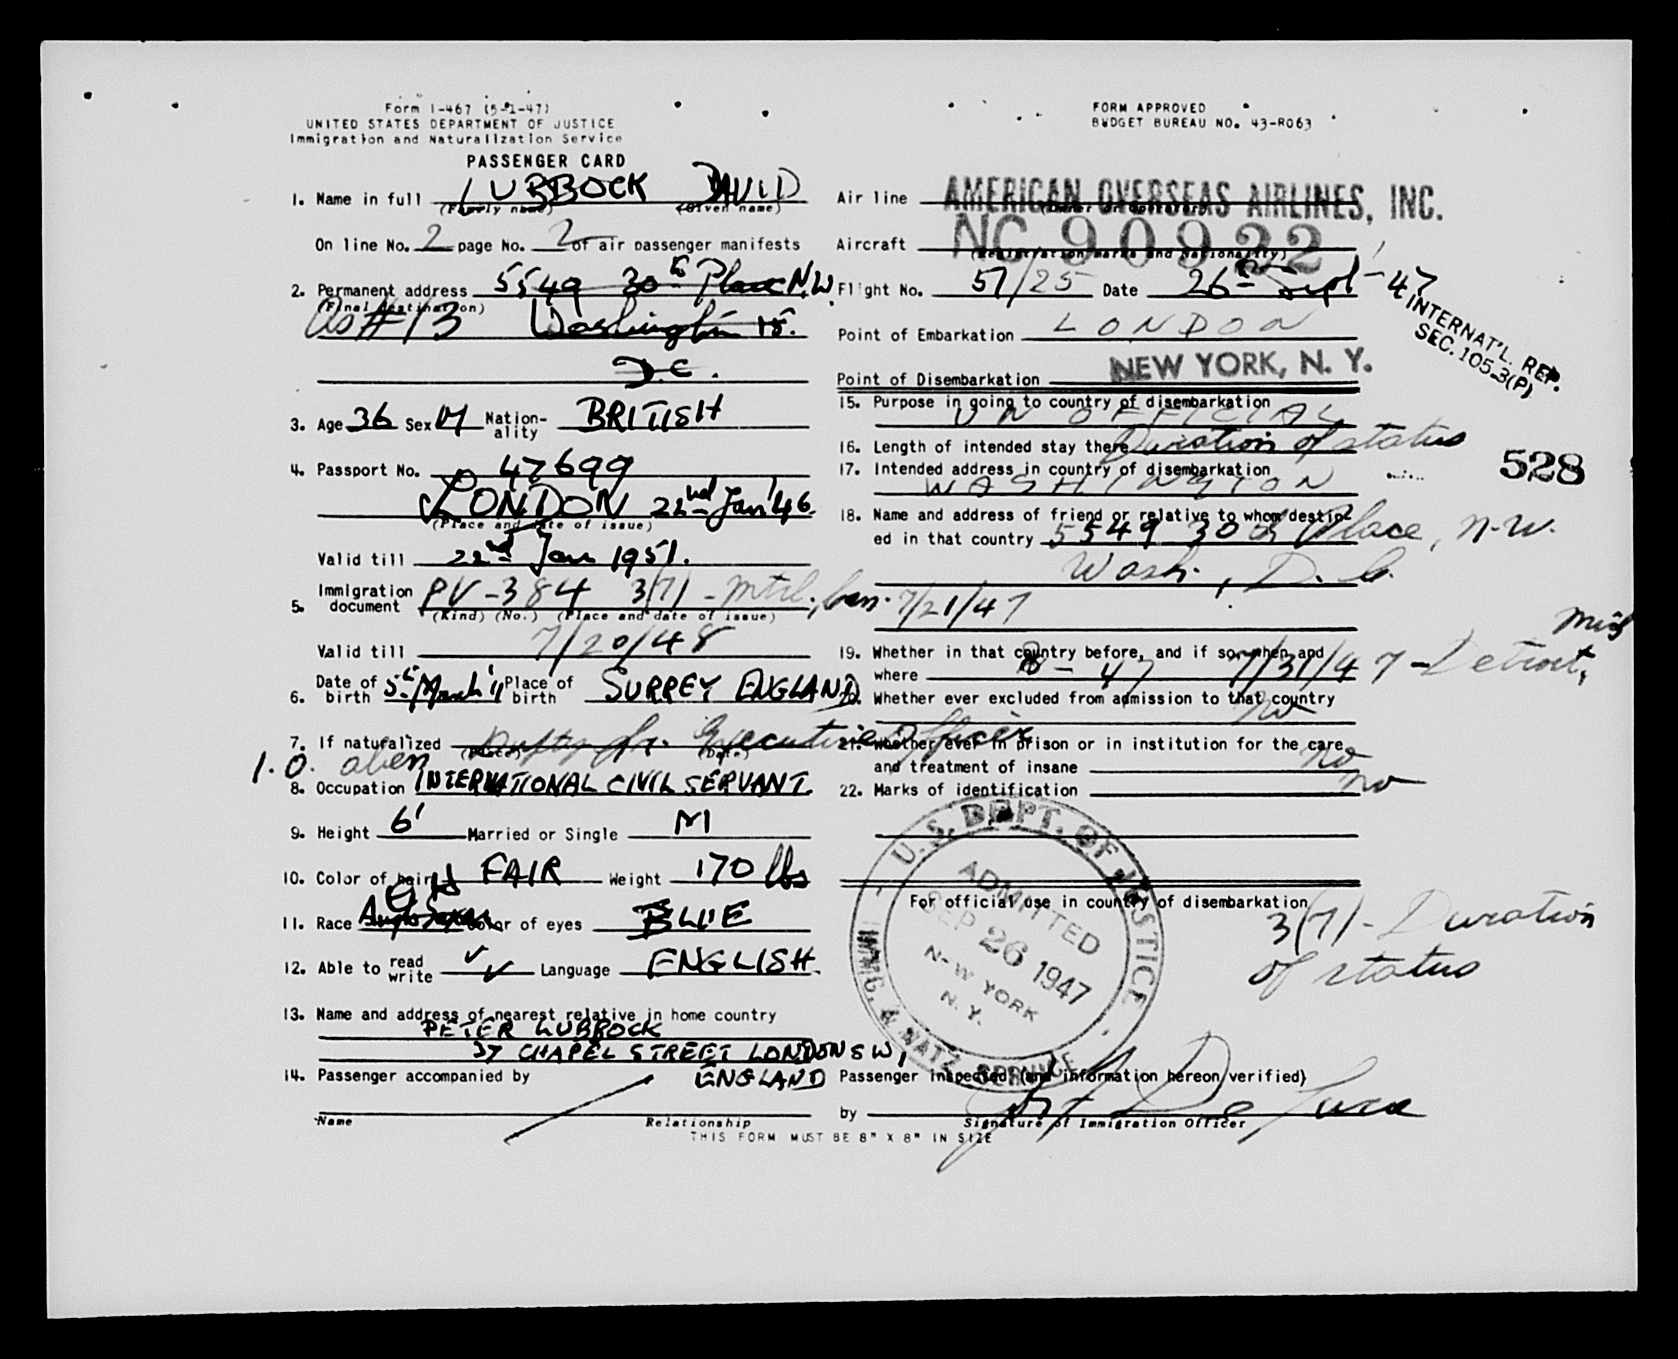 Form I-467 (5-1-47)
UNITED STATES DEPARTMENT OF JUSTICE
Immigration and Naturalization Service
PASSENGER CARD
1. Name in full LUBBOCK DAVID
(Family name) (Given name)
On line No. 2 page No. 2 of air passenger manifests
2. Permanent address 5549 30th Place N.W.
(Final destination)
As #13 Washington 15.
D.C.
3. Age 36 Sex M Nation-ality BRITISH
4. Passport No. 47699
LONDON 22nd Jan '46.
(Place and date of issue)
Valid till 22nd Jan 1951.
5. Immigration document PV-384 3(7) - Mtrl., Can. 7/21/47
(Kind) (No.) (Place and date of issue)
Valid till 7/20/48
6. Date of birth 5th March '11 Place of birth SURREY ENGLAND
7. If naturalized Executive Officer
(Place) (Date)
I.O. alien
8. Occupation INTERNATIONAL CIVIL SERVANT.
9. Height 6' Married or Single M
10. Color of hair FAIR Weight 170 lbs
11. Race Anglo Saxon Color of eyes BLUE
12. Able to read write ✓ ✓ Language ENGLISH.
13. Name and address of nearest relative in home country
PETER LUBBOCK
37 CHAPEL STREET LONDON SW1
ENGLAND
14. Passenger accompanied by
Name Relationship
THIS FORM MUST BE 8" X 8" IN SIZE
FORM APPROVED
BUDGET BUREAU NO. 43-R063
Air line AMERICAN OVERSEAS AIRLINES, INC.
(Owner or operator)
Aircraft NC 90922
(Registration marks and nationality)
Flight No. 57/25 Date 26th Sept - 47
INTERNAT'L. REP.
SEC. 105.3(P)
Point of Embarkation LONDON
Point of Disembarkation NEW YORK, N. Y.
15. Purpose in going to country of disembarkation
UN OFFICIAL
16. Length of intended stay there Duration of status
528
17. Intended address in country of disembarkation
WASHINGTON
18. Name and address of friend or relative to whom destin-
ed in that country 5549 30th Place, N.W.
Wash., D.C.
19. Whether in that country before, and if so, when and
where 8-47 7/31/47 - Detroit, Mich
20. Whether ever excluded from admission to that country
no
21. Whether ever in prison or in institution for the care
and treatment of insane no
22. Marks of identification no
U. S. DEPT. OF JUSTICE
IMMIG. & NATZ. SERVICE
ADMITTED
SEP 26 1947
NEW YORK
N. Y.
For official use in country of disembarkation
3(7) - Duration
of status
Passenger inspected (and information hereon verified)
by De Luca
Signature of Immigration Officer